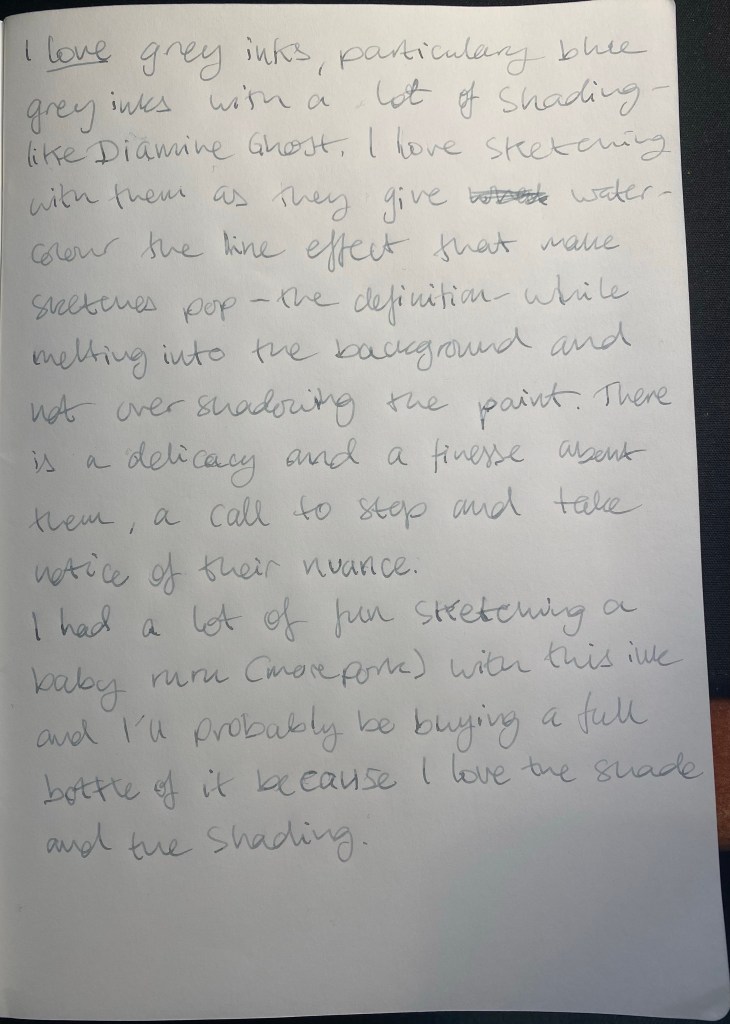 I love grey inks, particulary blue
grey inks with a lot of shading -
like Diamine Ghost. I love sketching
with them as they give water-
colour the line effect that make
sketches pop - the definition - while
melting into the background and
not over shadowing the paint. There
is a delicacy and a finesse about
them, a call to stop and take
notice of their nuance.
I had a lot of fun sketching a
baby ruru (morepork) with this ink
and I'll probably be buying a full
bottle of it because I love the shade
and the shading.